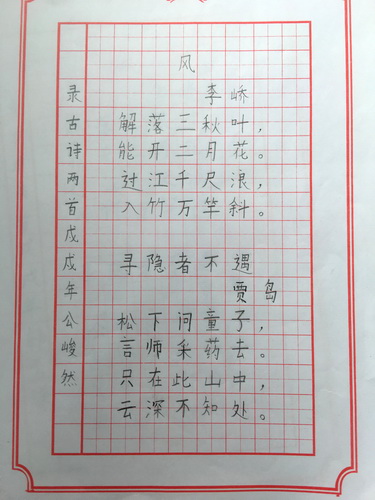 风
李峤
解落三秋叶，
能开二月花。
过江千尺浪，
入竹万竿斜。
寻隐者不遇
贾岛
松下问童子，
言师采药去。
只在此山中，
云深不知处。
录古诗两首戊戌年公峻然